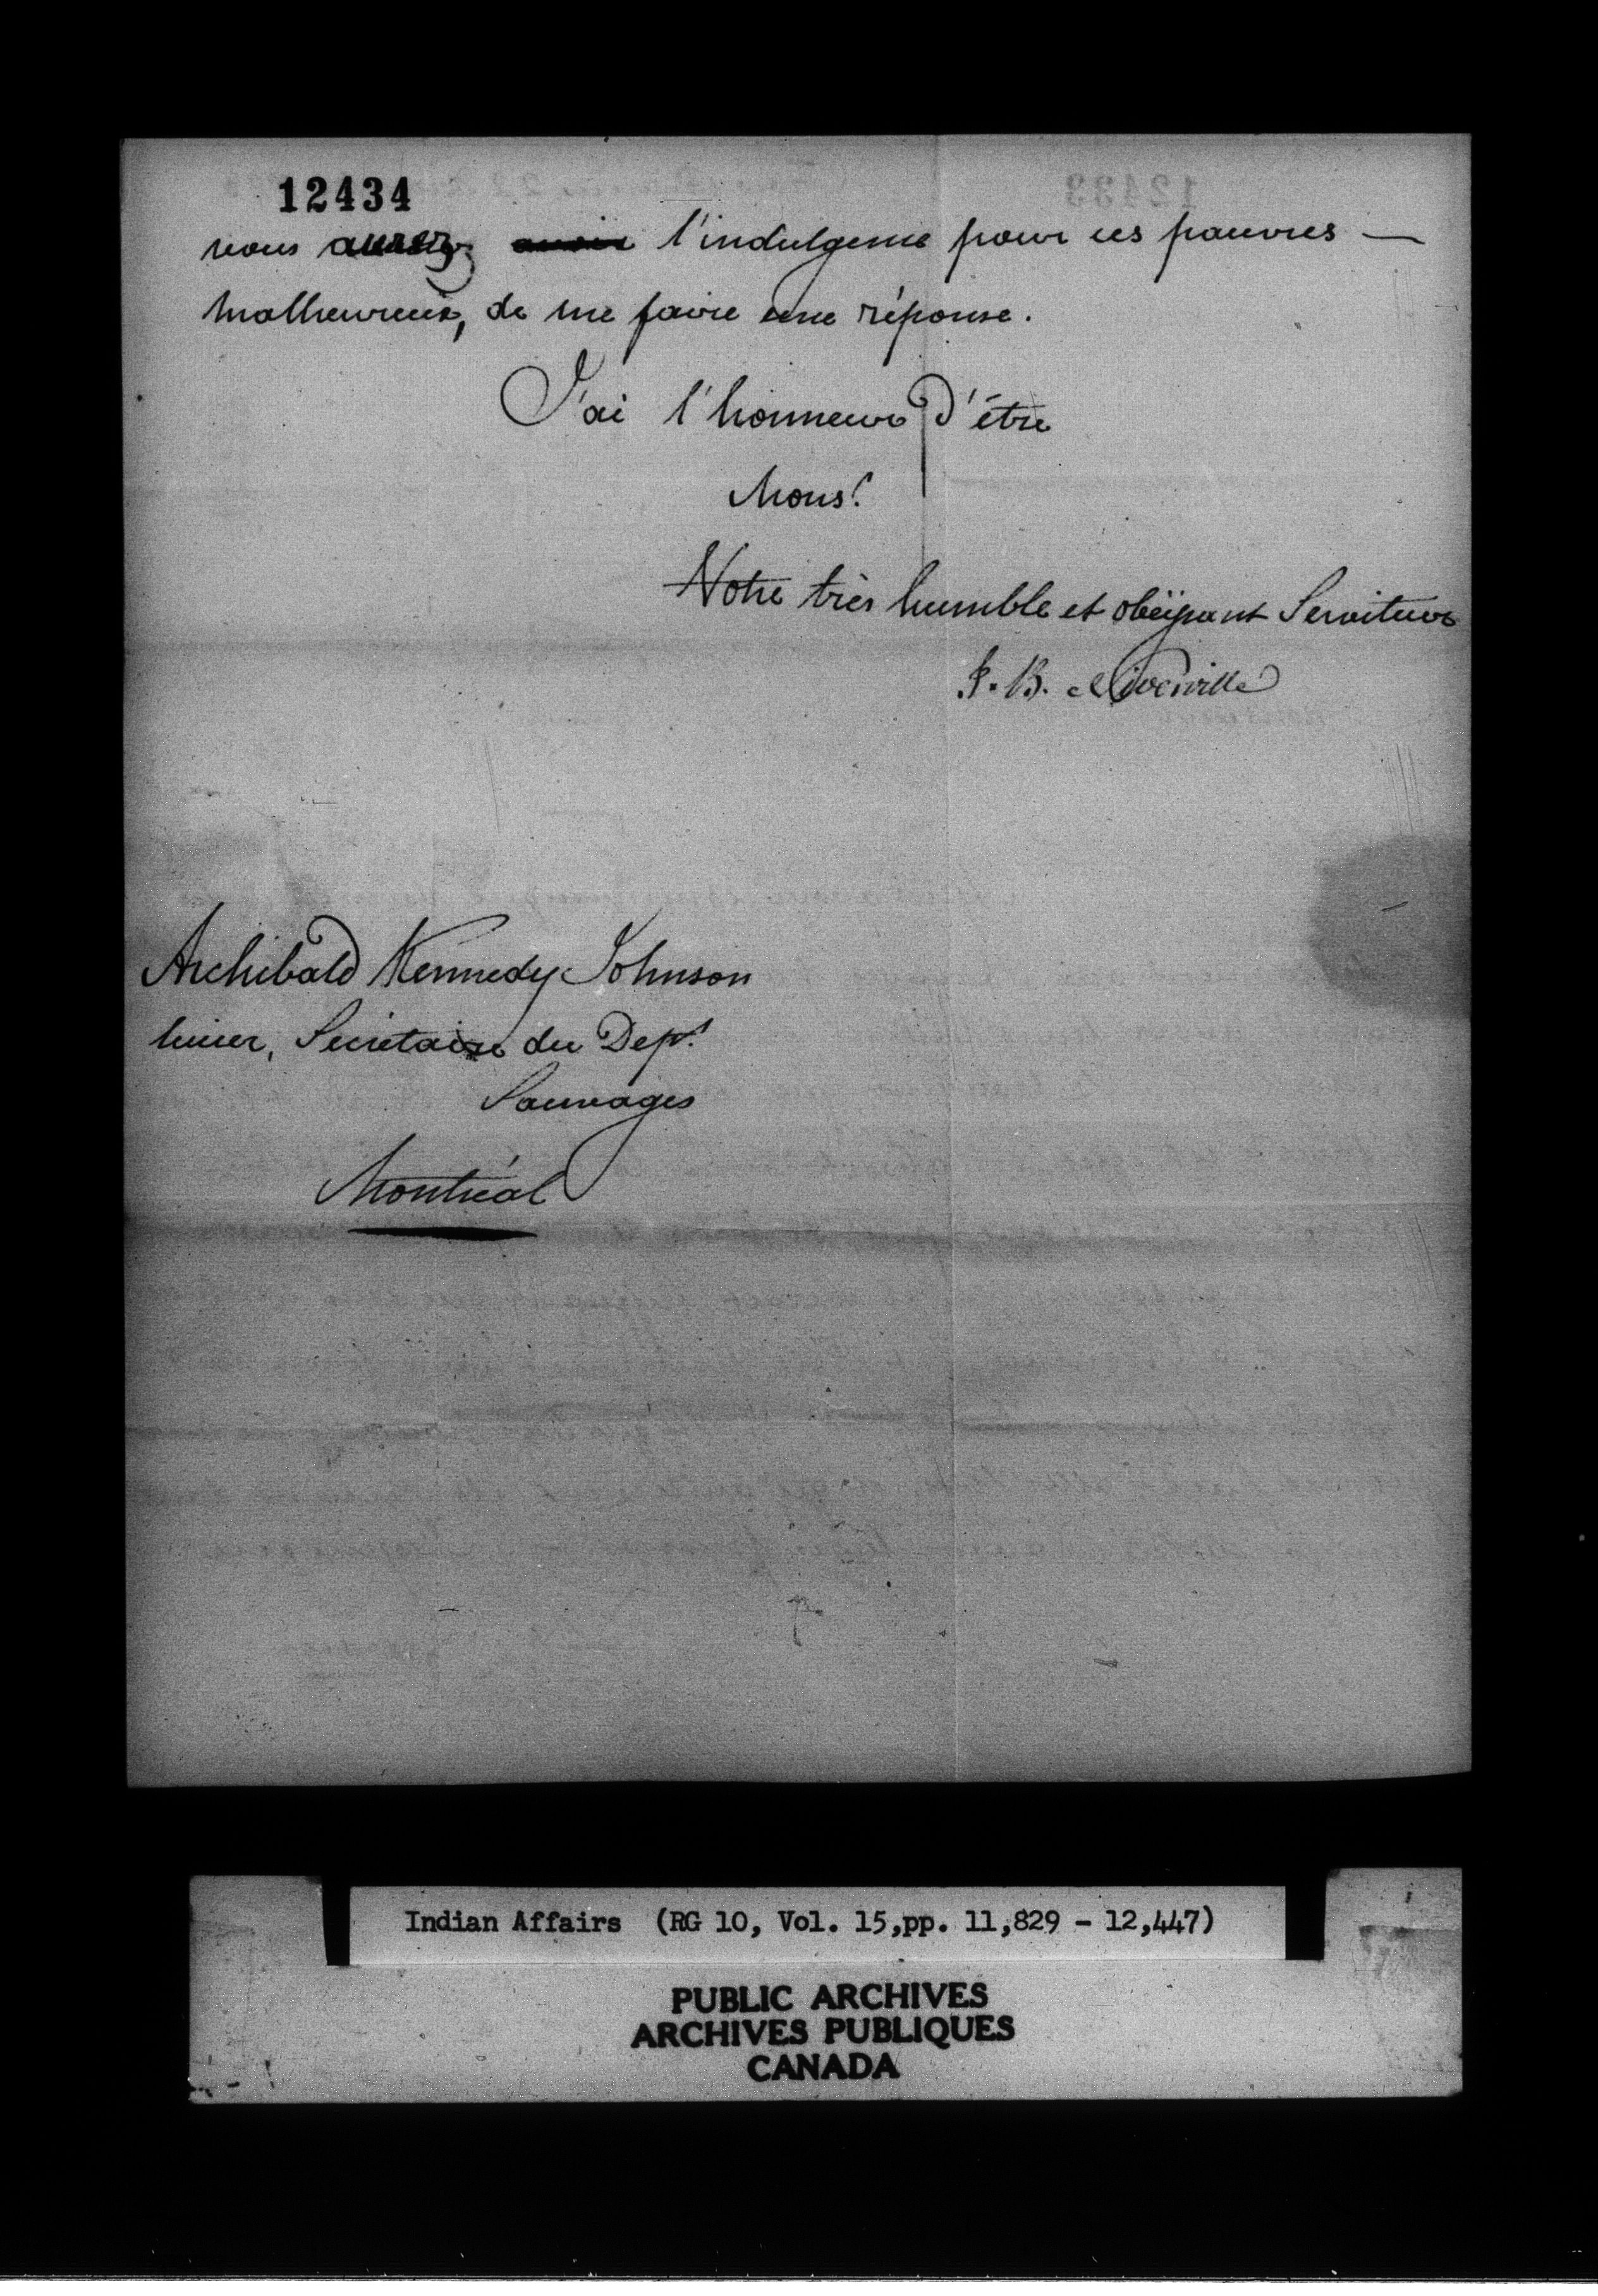 12434
vous aurez avoir l'indulgence pour ces pauvres —
malheureux, de me faire une réponse.
J'ai l'honneur d'être
Monsr.
Votre très humble et obéissant Serviteur
J. B. Niverville
Archibald Kennedy Johnson
Ecuier, Secretaire du Dept.
Sauvages
Montréal
Indian Affairs (RG 10, Vol. 15,pp. 11,829 - 12,447)
PUBLIC ARCHIVES
ARCHIVES PUBLIQUES
CANADA